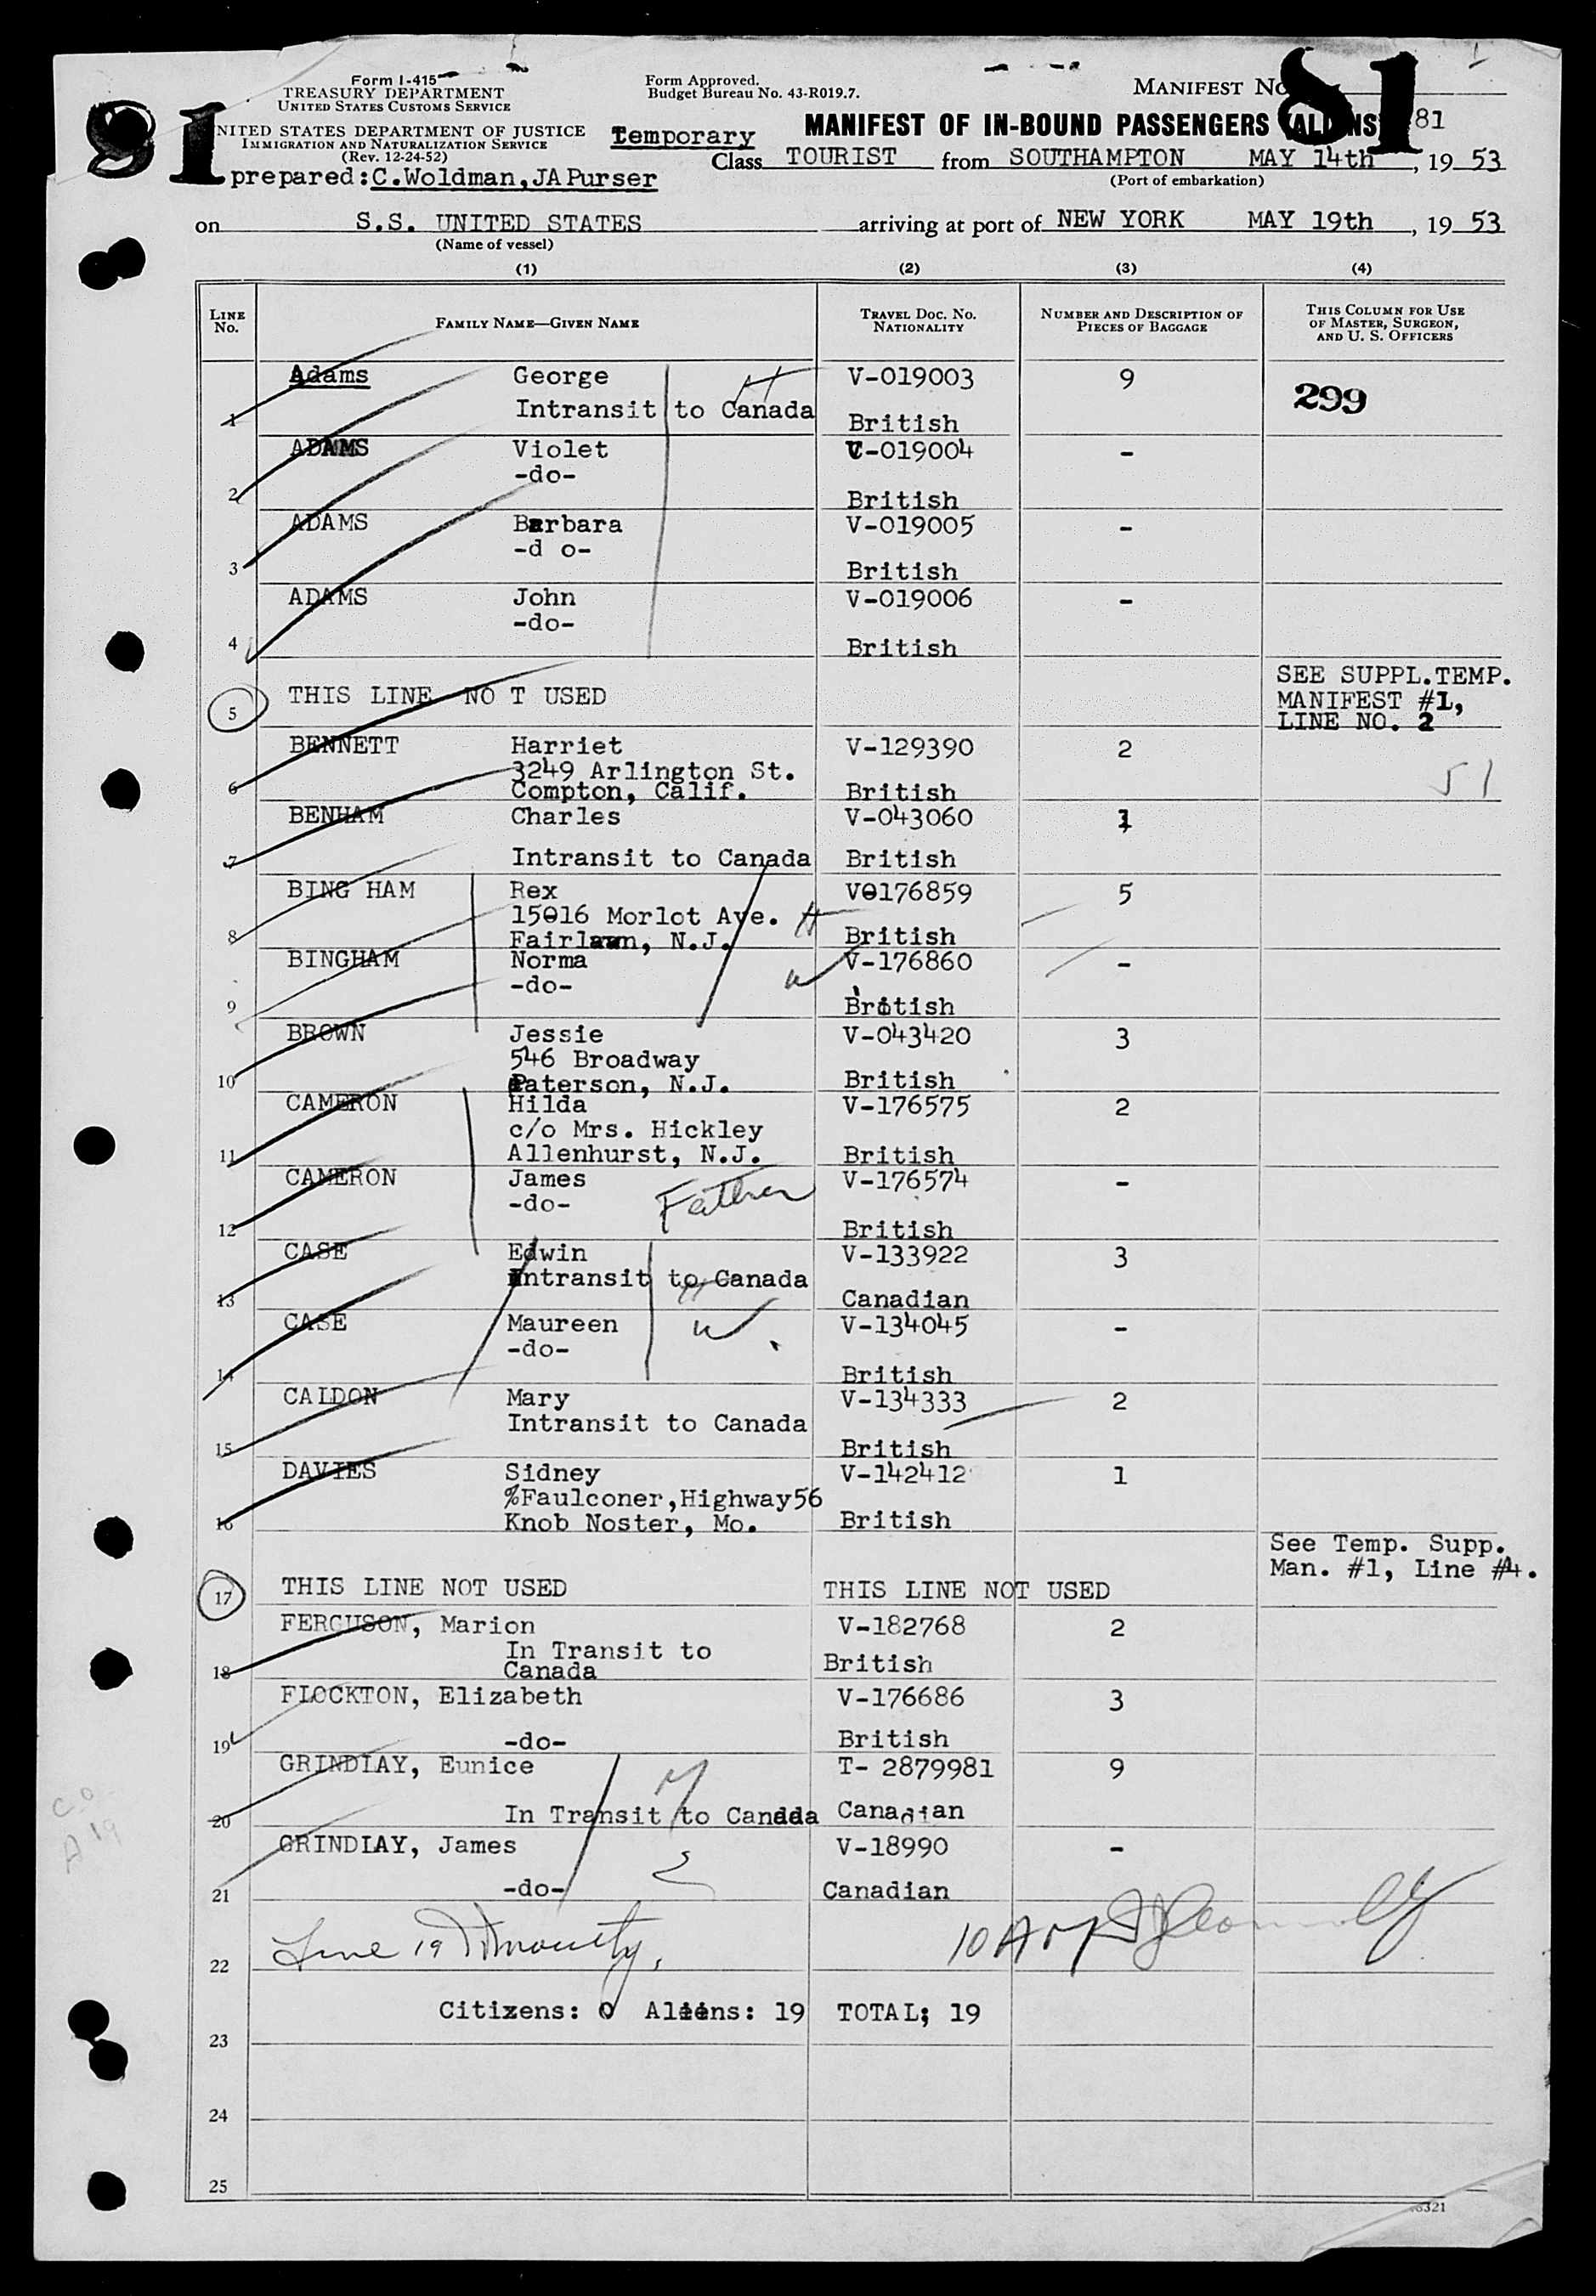 Form I-415
TREASURY DEPARTMENT
UNITED STATES CUSTOMS SERVICE
Form Approved.
Budget Bureau No. 43-R019.7.
MANIFEST No.
81
91
UNITED STATES DEPARTMENT OF JUSTICE
IMMIGRATION AND NATURALIZATION SERVICE
(Rev. 12-24-52)
Temporary
MANIFEST OF IN-BOUND PASSENGERS (ALIENS) 81
Class TOURIST from SOUTHAMPTON MAY 14th, 19 53
(Port of embarkation)
prepared:C.Woldman,JAPurser
on S.S. UNITED STATES arriving at port of NEW YORK MAY 19th, 19 53
(Name of vessel)
(1) (2) (3) (4)
LINE No.
FAMILY NAME—GIVEN NAME
TRAVEL DOC. No. NATIONALITY
NUMBER AND DESCRIPTION OF PIECES OF BAGGAGE
THIS COLUMN FOR USE OF MASTER, SURGEON, AND U. S. OFFICERS
Adams George V-019003 9
299
1 Intransit to Canada British
H
ADAMS Violet V-019004 -
-do-
2 British
ADAMS Barbara V-019005 -
-d o-
3 British
ADAMS John V-019006 -
-do-
4 British
SEE SUPPL.TEMP.
5 THIS LINE NO T USED MANIFEST #1,
LINE NO. 2
BENNETT Harriet V-129390 2
3249 Arlington St.
6 Compton, Calif. British
51
BENHAM Charles V-043060 1
7 Intransit to Canada British
BING HAM Rex V0176859 5
15016 Morlot Ave. H
8 Fairlawn, N.J. British
BINGHAM Norma V-176860 -
-do- W
9 British
BROWN Jessie V-043420 3
546 Broadway
10 Paterson, N.J. British
CAMERON Hilda V-176575 2
c/o Mrs. Hickley
11 Allenhurst, N.J. British
CAMERON James V-176574 -
-do- Father
12 British
CASE Edwin V-133922 3
Intransit to Canada
H
13 Canadian
CASE Maureen V-134045 -
-do- W
14 British
CALDON Mary V-134333 2
Intransit to Canada
15 British
DAVIES Sidney V-142412 1
%Faulconer,Highway56
16 Knob Noster, Mo. British
See Temp. Supp.
Man. #1, Line #4.
17 THIS LINE NOT USED THIS LINE NOT USED
FERGUSON, Marion V-182768 2
In Transit to
18 Canada British
FLOCKTON, Elizabeth V-176686 3
19 -do- British
GRINDLAY, Eunice T- 2879981 9
M
20 In Transit to Canada Canadian
GRINDLAY, James V-18990 -
S
21 -do- Canadian
22 Line 19
10 AM
Citizens: 0 Aliens: 19 TOTAL; 19
23
24
25
C.O.
A 19